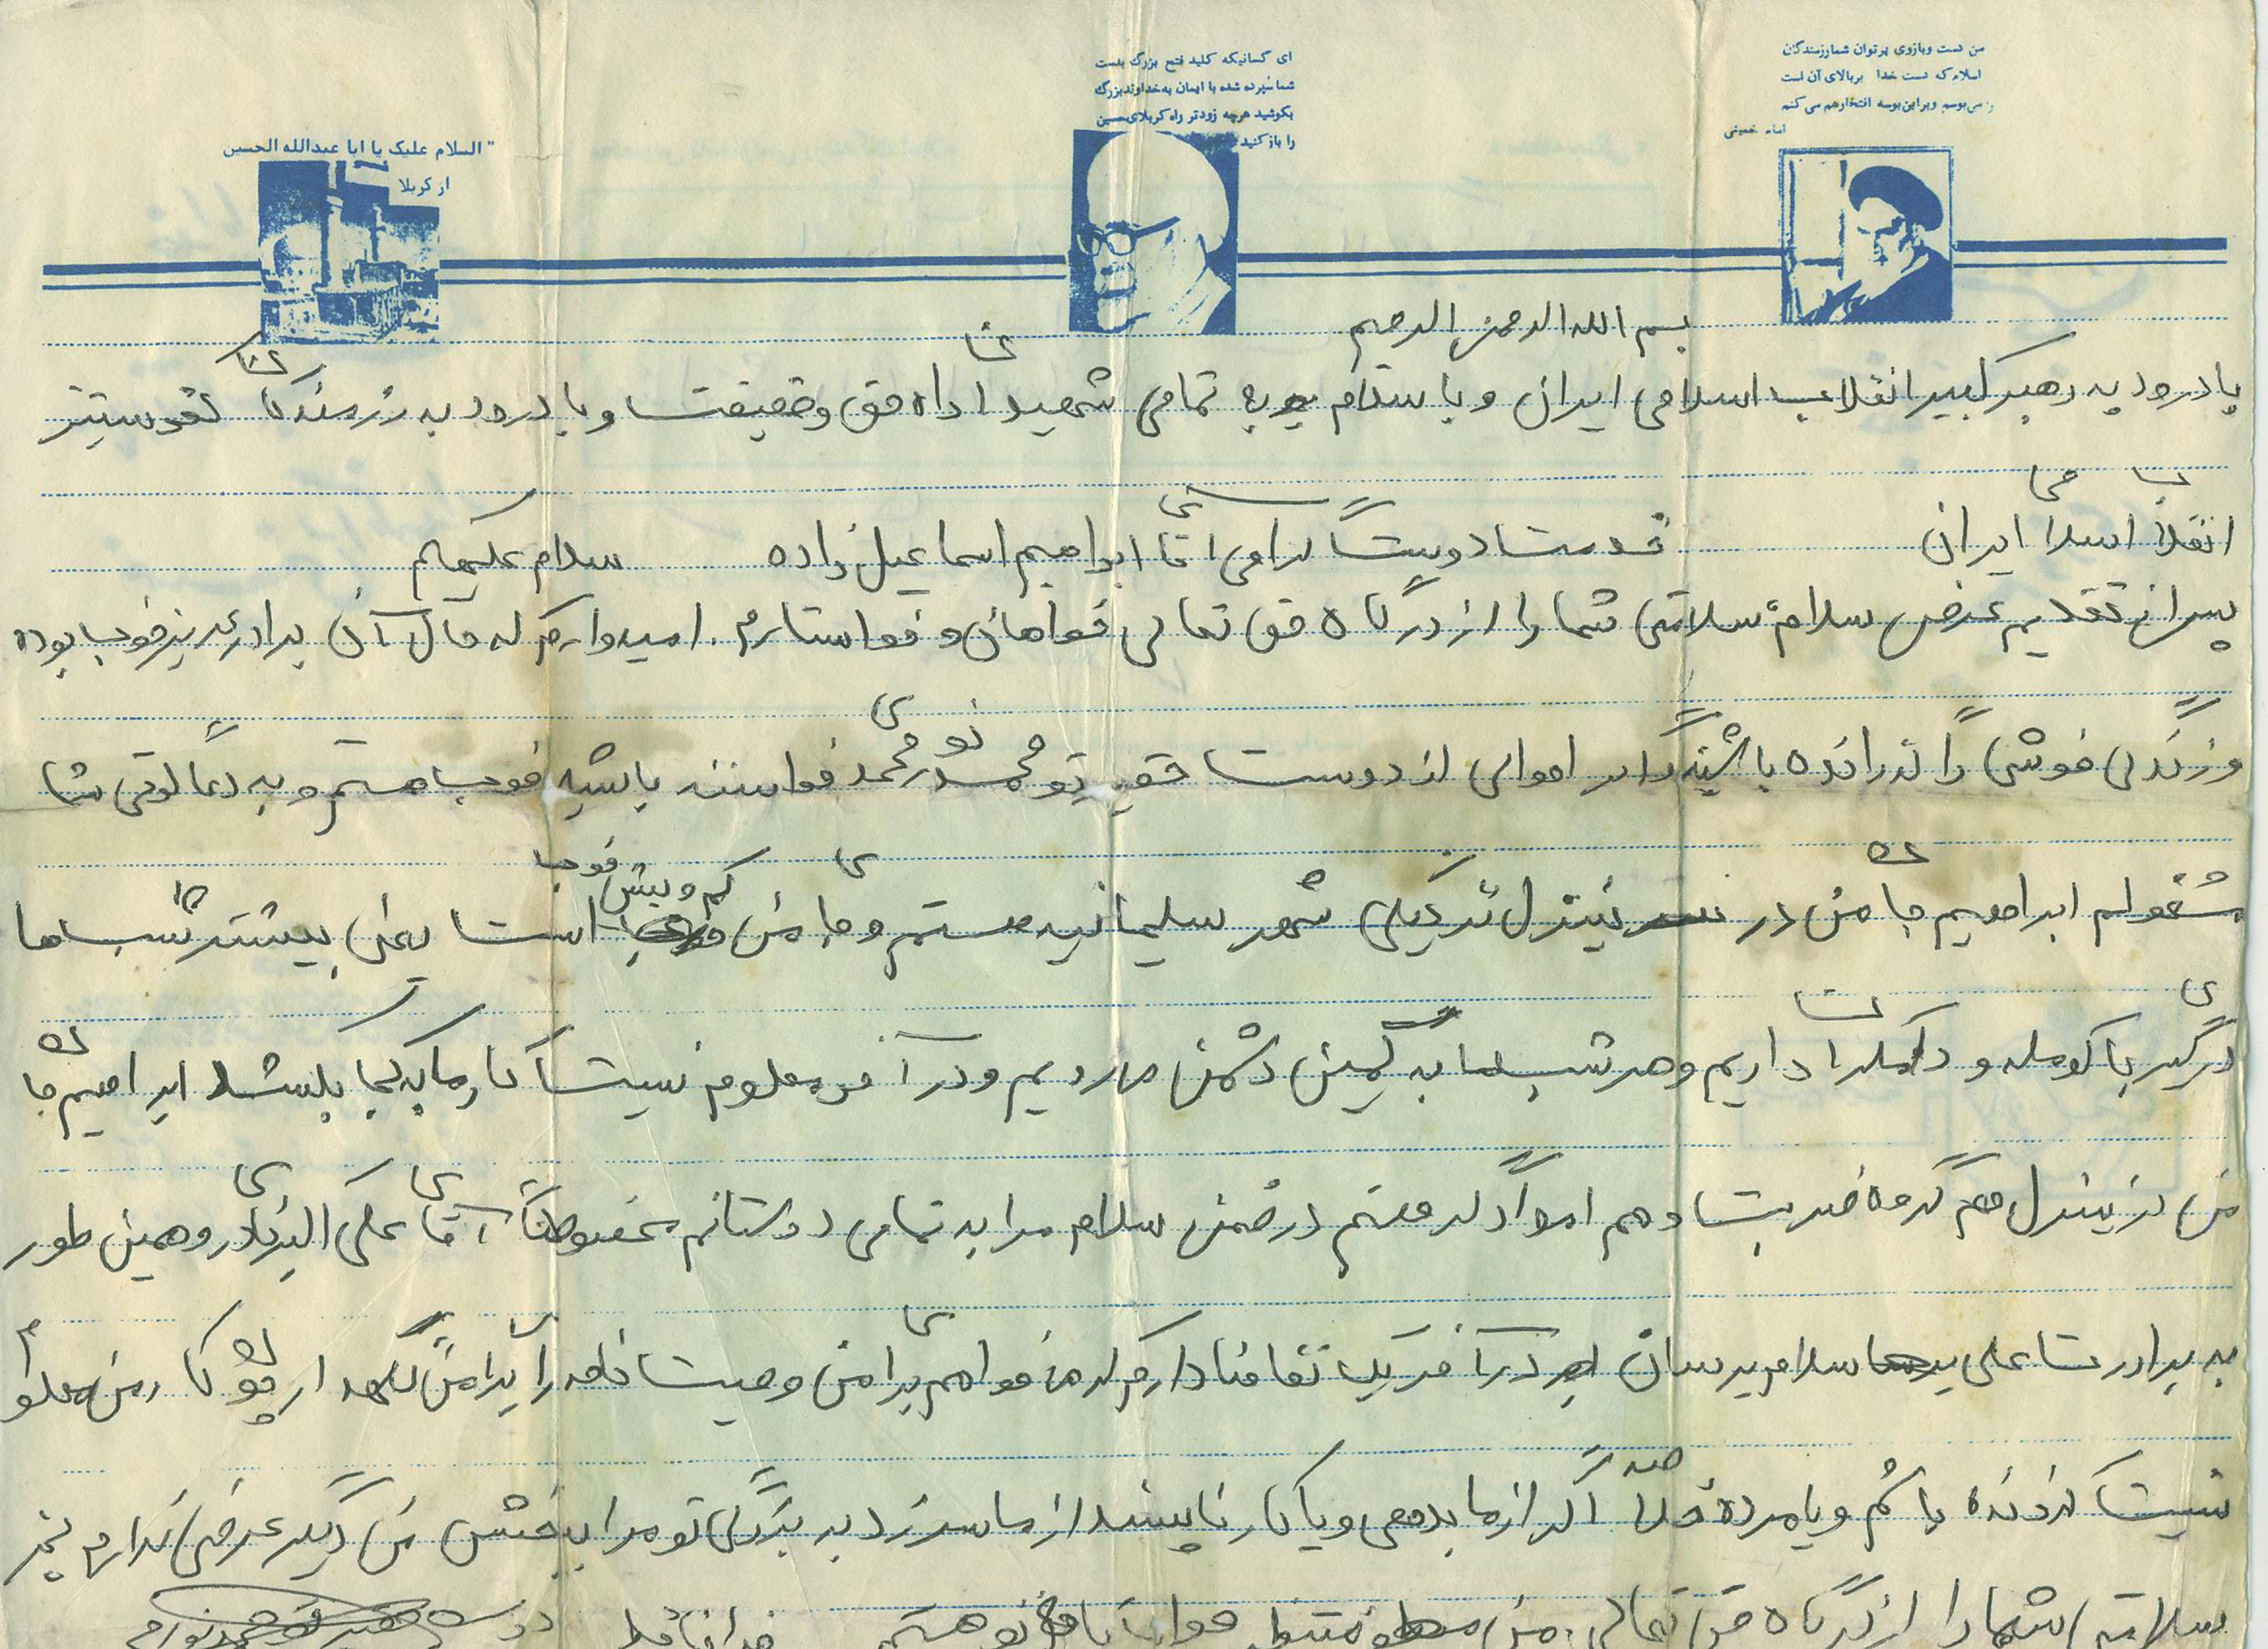 من دست و بازوی پرتوان شما رزمندگان
اسلام که دست خدا بربالای آن است
می بوسم و بر این بوسه افتخار هم می کنم
امام خمینی
ای کسانیکه کلید فتح بزرگ بدست
شما سپرده شده با ایمان به خداوند بزرگ
بکوشید هرچه زودتر راه کربلای حسین
را باز کنید
" السلام علیک یا ابا عبدالله الحسین
از کربلا
بسم الله الرحمن الرحیم
با درود به رهبر کبیر انقلاب اسلامی ایران و با سلام به تمامی شهیدان راه حق و حقیقت و با درود به رزمندگان
انقلاب اسلامی ایران خدمت دوست گرامی آقای ابراهیم اسماعیل زاده سلام علیکم
پس از تقدیم عرض سلام سلامتی شما را از درگاه حق تعالی خواهان و خواستارم . امیدوارم که حال آن برادر عزیز خوب بوده
و زندگی خوشی را گذرانده باشید اگر احوالی از دوست حقیر تو محمد نورمحمدی خواسته باشید خوب هستم و به دعا گوئی شما
مشغولم ابراهیم جان من در نیزل نزدیکی شهر سلیمانیه هستم و جای من کم و بیش خوب است یعنی بیشتر شب ها
درگیری با کومله و دمکرات داریم و هر شب ما به کمین دشمن می رویم و در آخر معلوم نیست کار ما به کجا بکشد ابراهیم جان
من در نیزل هم گروه ضربت و هم امدادگر هستم در ضمن سلام مرا به تمامی دوستانم مخصوصاً آقای علی اکبر و همین طور
به برادرت علی سلام برسان در آخر یک تقاضا دارم که می خواهم برای من وصیت نامه را برایم نگهدار چون کار من معلوم
نیست که زنده باشم و یا مرده اگر از ما بدی و یا کار ناپسند از ما سر زد به بزرگی تو مرا ببخش من دیگر عرضی ندارم بجز
سلامتی شما را از درگاه حق تعالی من منتظر جواب نامه تو هستم خدا حافظ